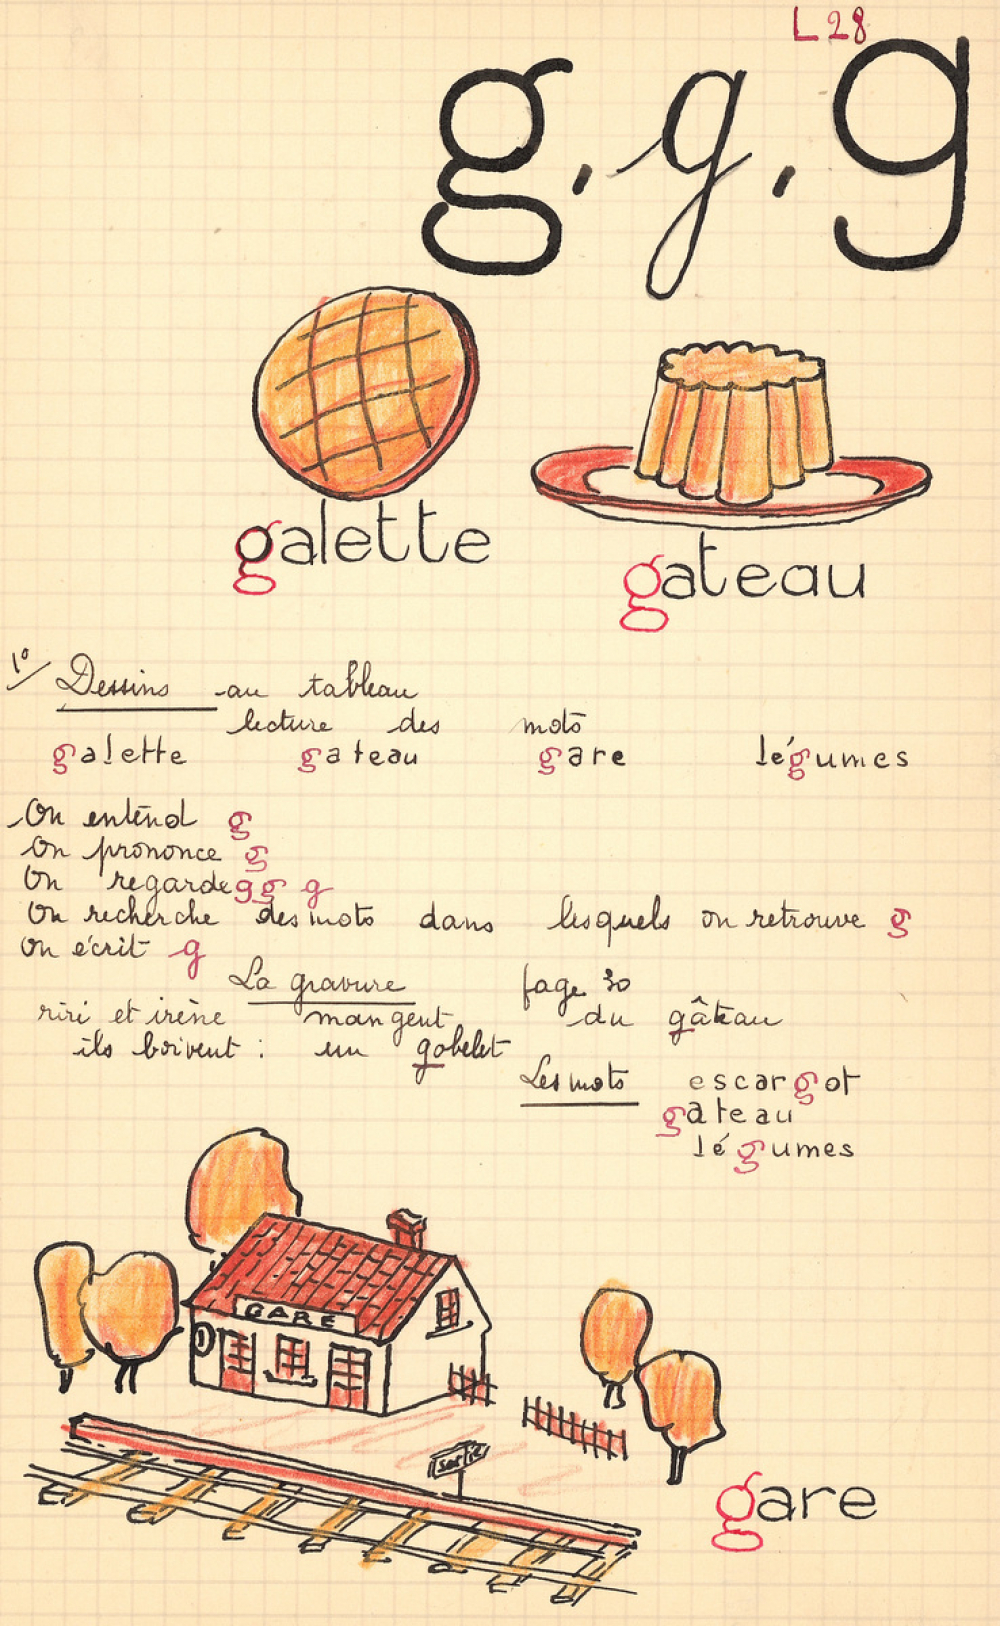 L 28
g, g, g
galette
gateau
1º/ Dessins au tableau
lecture des mots
galette gateau gare légumes
On entend g
On prononce g
On regarde g g g
On recherche des mots dans lesquels on retrouve g
On écrit g
La gravure page 30
riri et irène mangent du gâteau
ils boivent : un gobelet
Les mots escargot
gateau
légumes
GARE
sortie
gare